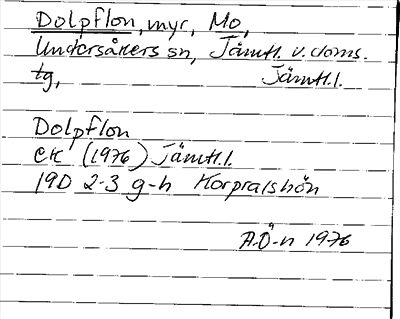 Dolpflon, myr, Mo,
Undersåkers sn, Jämtl. v. doms.
tg, Jämtl.l.
Dolpflon
ek (1976) Jämtl.l.
19D 2-3 g-h Korpralshön
A.Ö-n 1976